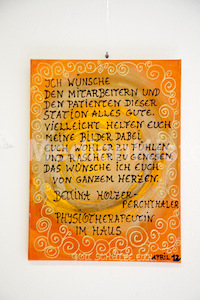 ICH WÜNSCHE
DEN MITARBEITERN UND
DEN PATIENTEN DIESER
STATION ALLES GUTE.
VIELLEICHT HELFEN EUCH
MEINE BILDER DABEI
EUCH WOHLER ZU FÜHLEN
UND RASCHER ZU GENESEN
DAS WÜNSCHE ICH EUCH
VON GANZEM HERZEN.
BETTINA HOLZER-
PERCHTHALER
PHYSIOTHERAPEUTIN
IM HAUS
APRIL 12